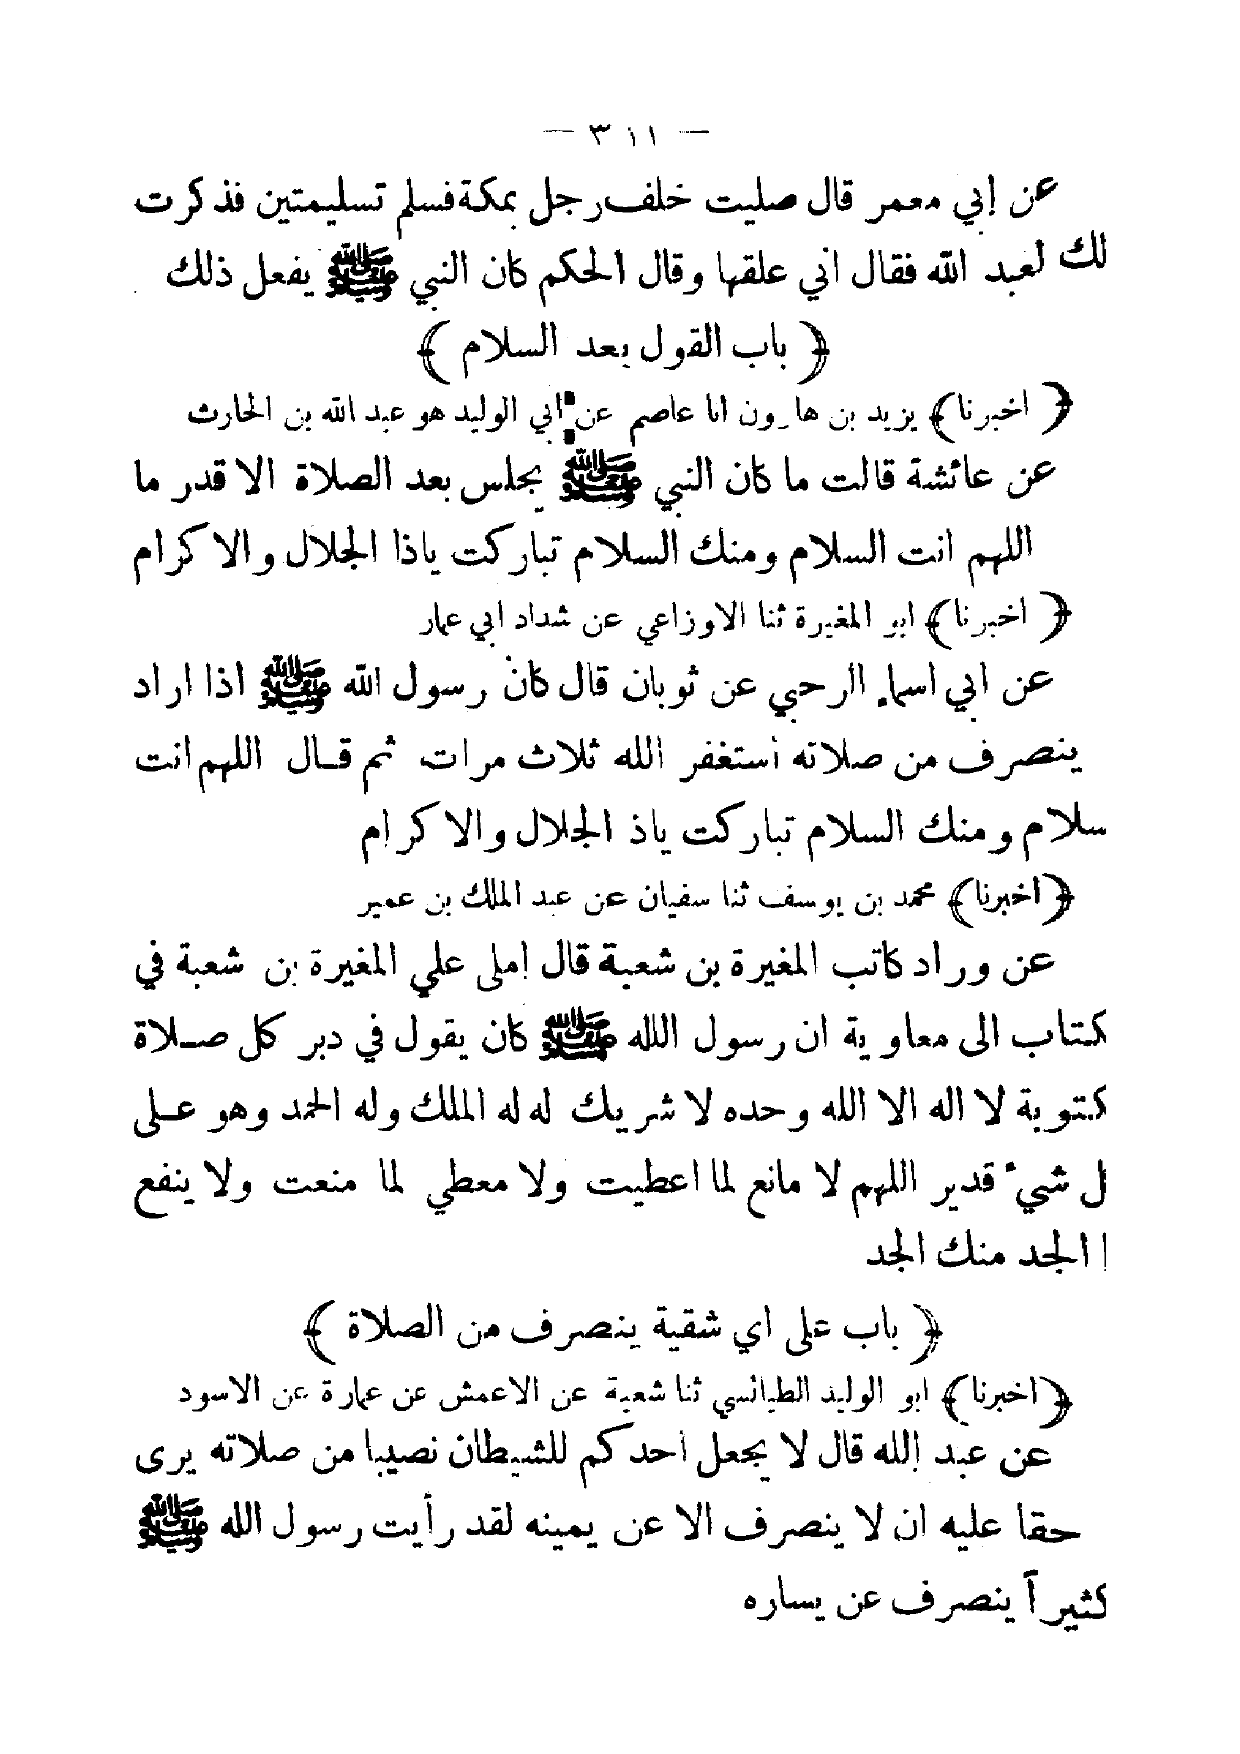 — ٣١١ —
عن إبي معمر قال صليت خلف رجل بمكة فسلم تسليمتين فذكرت
لك لعبد الله فقال اني علقها وقال الحكم كان النبي ﷺ يفعل ذلك
﴿ باب القول بعد السلام ﴾
﴿ اخبرنا ﴾ يزيد بن هارون انا عاصم عن ابي الوليد هو عبد الله بن الحارث
عن عائشة قالت ما كان النبي ﷺ يجلس بعد الصلاة الا قدر ما
اللهم انت السلام ومنك السلام تباركت ياذا الجلال والاكرام
﴿ اخبرنا ﴾ ابو المغيرة ثنا الاوزاعي عن شداد ابي عمار
عن ابي اسماء الرحبي عن ثوبان قال كان رسول الله ﷺ اذا اراد
ينصرف من صلاته استغفر الله ثلاث مرات ثم قال اللهم انت
سلام ومنك السلام تباركت ياذ الجلال والاكرام
﴿ اخبرنا ﴾ محمد بن يوسف ثنا سفيان عن عبد الملك بن عمير
عن وراد كاتب المغيرة بن شعبة قال املى علي المغيرة بن شعبة في
كتاب الى معاوية ان رسول الله ﷺ كان يقول في دبر كل صلاة
كتوبة لا اله الا الله وحده لا شريك له له الملك وله الحمد وهو على
ل شيء قدير اللهم لا مانع لما اعطيت ولا معطي لما منعت ولا ينفع
ا الجد منك الجد
﴿ باب على اي شقية ينصرف من الصلاة ﴾
﴿ اخبرنا ﴾ ابو الوليد الطيالسي ثنا شعبة عن الاعمش عن عمارة عن الاسود
عن عبد الله قال لا يجعل احدكم للشيطان نصيبا من صلاته يرى
حقا عليه ان لا ينصرف الا عن يمينه لقد رأيت رسول الله ﷺ
كثيراً ينصرف عن يساره